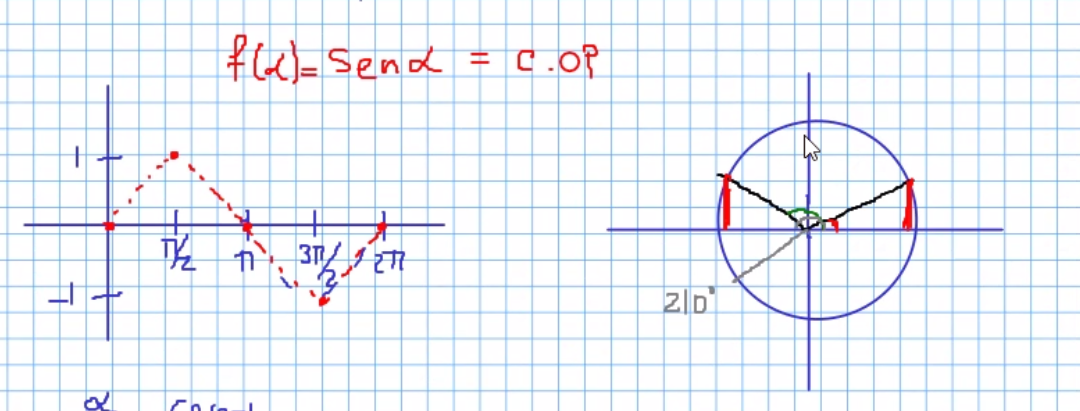 f(α) = Sen α = C.OP
1
π/2
π
3π/2
2π
-1
210°
α